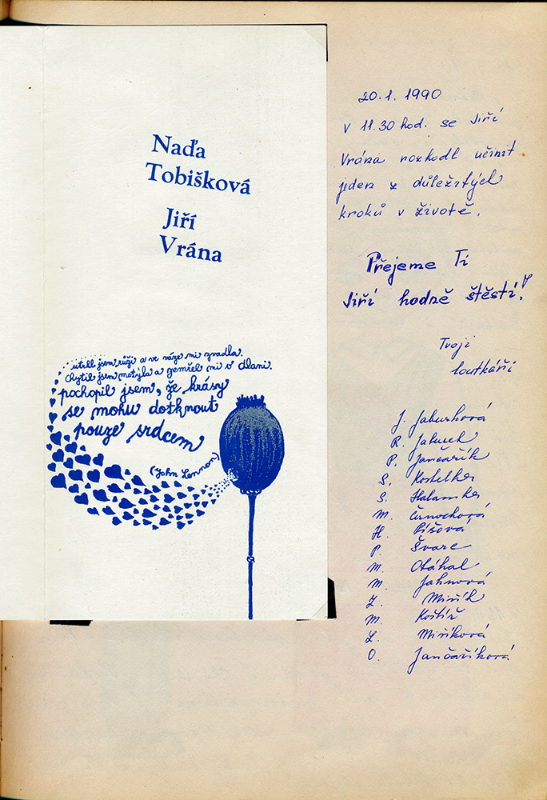 Naďa
Tobišková
Jiří
Vrána
utrhl jsem růži a ve váze mi zvadla.
Chytil jsem motýla a zemřel mi v dlani.
pochopil jsem, že krásy
se mohu dotknout
pouze srdcem
(John Lennon)
20.1.1990
v 11.30 hod. se Jiří
Vrána rozhodl učinit
jeden z důležitých
kroků v životě.
Přejeme Ti
Jiří hodně štěstí!
Tvoji
loutkáři
J. Jakushová
R. Jakusch
P. Jančařík
S. Kostelka
S. Halamka
M. Černochová
H. Píšová
P. Švarc
M. Otáhal
M. Jahnová
Z. Miřík
M. Koštíř
L. Miříková
O. Jančaříková